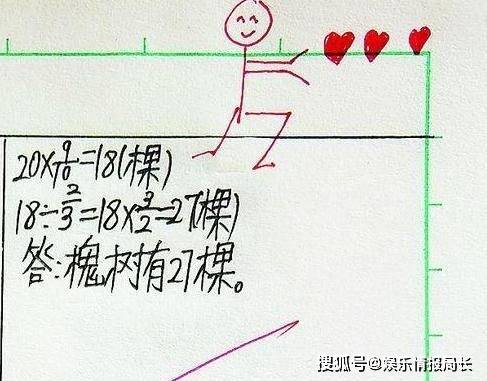 20×9/10=18(棵)
18÷2/3=18×3/2=27(棵)
答:槐树有27棵。
搜狐号@娱乐情报局长